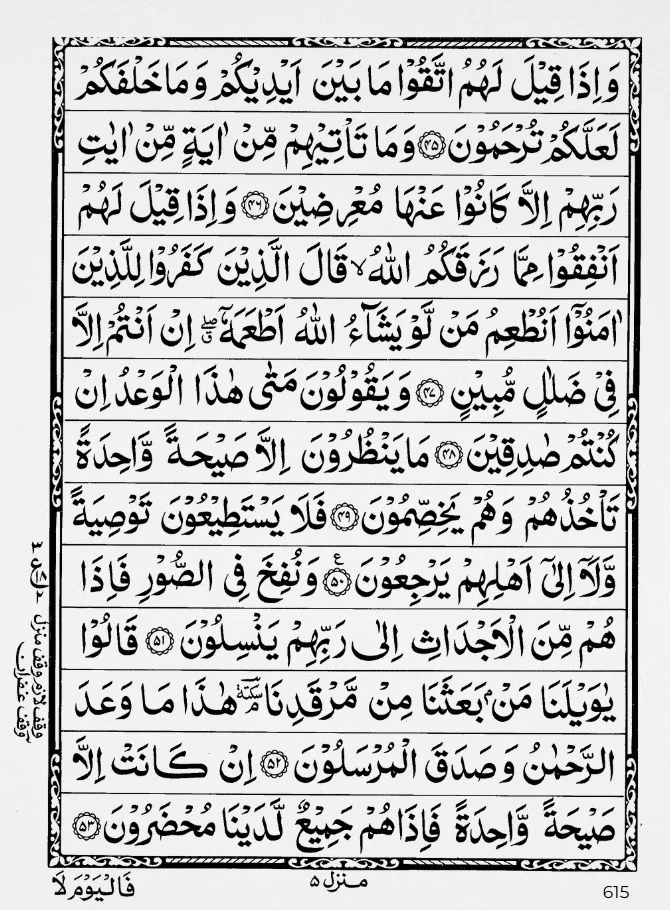 وَاِذَا قِيْلَ لَهُمُ اتَّقُوْا مَا بَيْنَ اَيْدِيْكُمْ وَمَا خَلْفَكُمْ
لَعَلَّكُمْ تُرْحَمُوْنَ ﴿۴۵﴾ وَمَا تَاْتِيْهِمْ مِّنْ اٰيَةٍ مِّنْ اٰيٰتِ
رَبِّهِمْ اِلَّا كَانُوْا عَنْهَا مُعْرِضِيْنَ ﴿۴۶﴾ وَاِذَا قِيْلَ لَهُمْ
اَنْفِقُوْا مِمَّا رَزَقَكُمُ اللّٰهُ ۙ قَالَ الَّذِيْنَ كَفَرُوْا لِلَّذِيْنَ
اٰمَنُوْٓا اَنُطْعِمُ مَنْ لَّوْ يَشَآءُ اللّٰهُ اَطْعَمَهٗٓ ۖق اِنْ اَنْتُمْ اِلَّا
فِيْ ضَلٰلٍ مُّبِيْنٍ ﴿۴۷﴾ وَيَقُوْلُوْنَ مَتٰى هٰذَا الْوَعْدُ اِنْ
كُنْتُمْ صٰدِقِيْنَ ﴿۴۸﴾ مَا يَنْظُرُوْنَ اِلَّا صَيْحَةً وَّاحِدَةً
تَاْخُذُهُمْ وَهُمْ يَخِصِّمُوْنَ ﴿۴۹﴾ فَلَا يَسْتَطِيْعُوْنَ تَوْصِيَةً
وَّلَآ اِلٰٓى اَهْلِهِمْ يَرْجِعُوْنَ ﴿۵۰﴾ ع وَنُفِخَ فِى الصُّوْرِ فَاِذَا
هُمْ مِّنَ الْاَجْدَاثِ اِلٰى رَبِّهِمْ يَنْسِلُوْنَ ﴿۵۱﴾ قَالُوْا
يٰوَيْلَنَا مَنْۢ بَعَثَنَا مِنْ مَّرْقَدِنَا ۘ سكتة هٰذَا مَا وَعَدَ
الرَّحْمٰنُ وَصَدَقَ الْمُرْسَلُوْنَ ﴿۵۲﴾ اِنْ كَانَتْ اِلَّا
صَيْحَةً وَّاحِدَةً فَاِذَا هُمْ جَمِيْعٌ لَّدَيْنَا مُحْضَرُوْنَ ﴿۵۳﴾
وقف لازم وقف منزل
وقف غفران
فَالْيَوْمَ لَا
منزل ۵
615